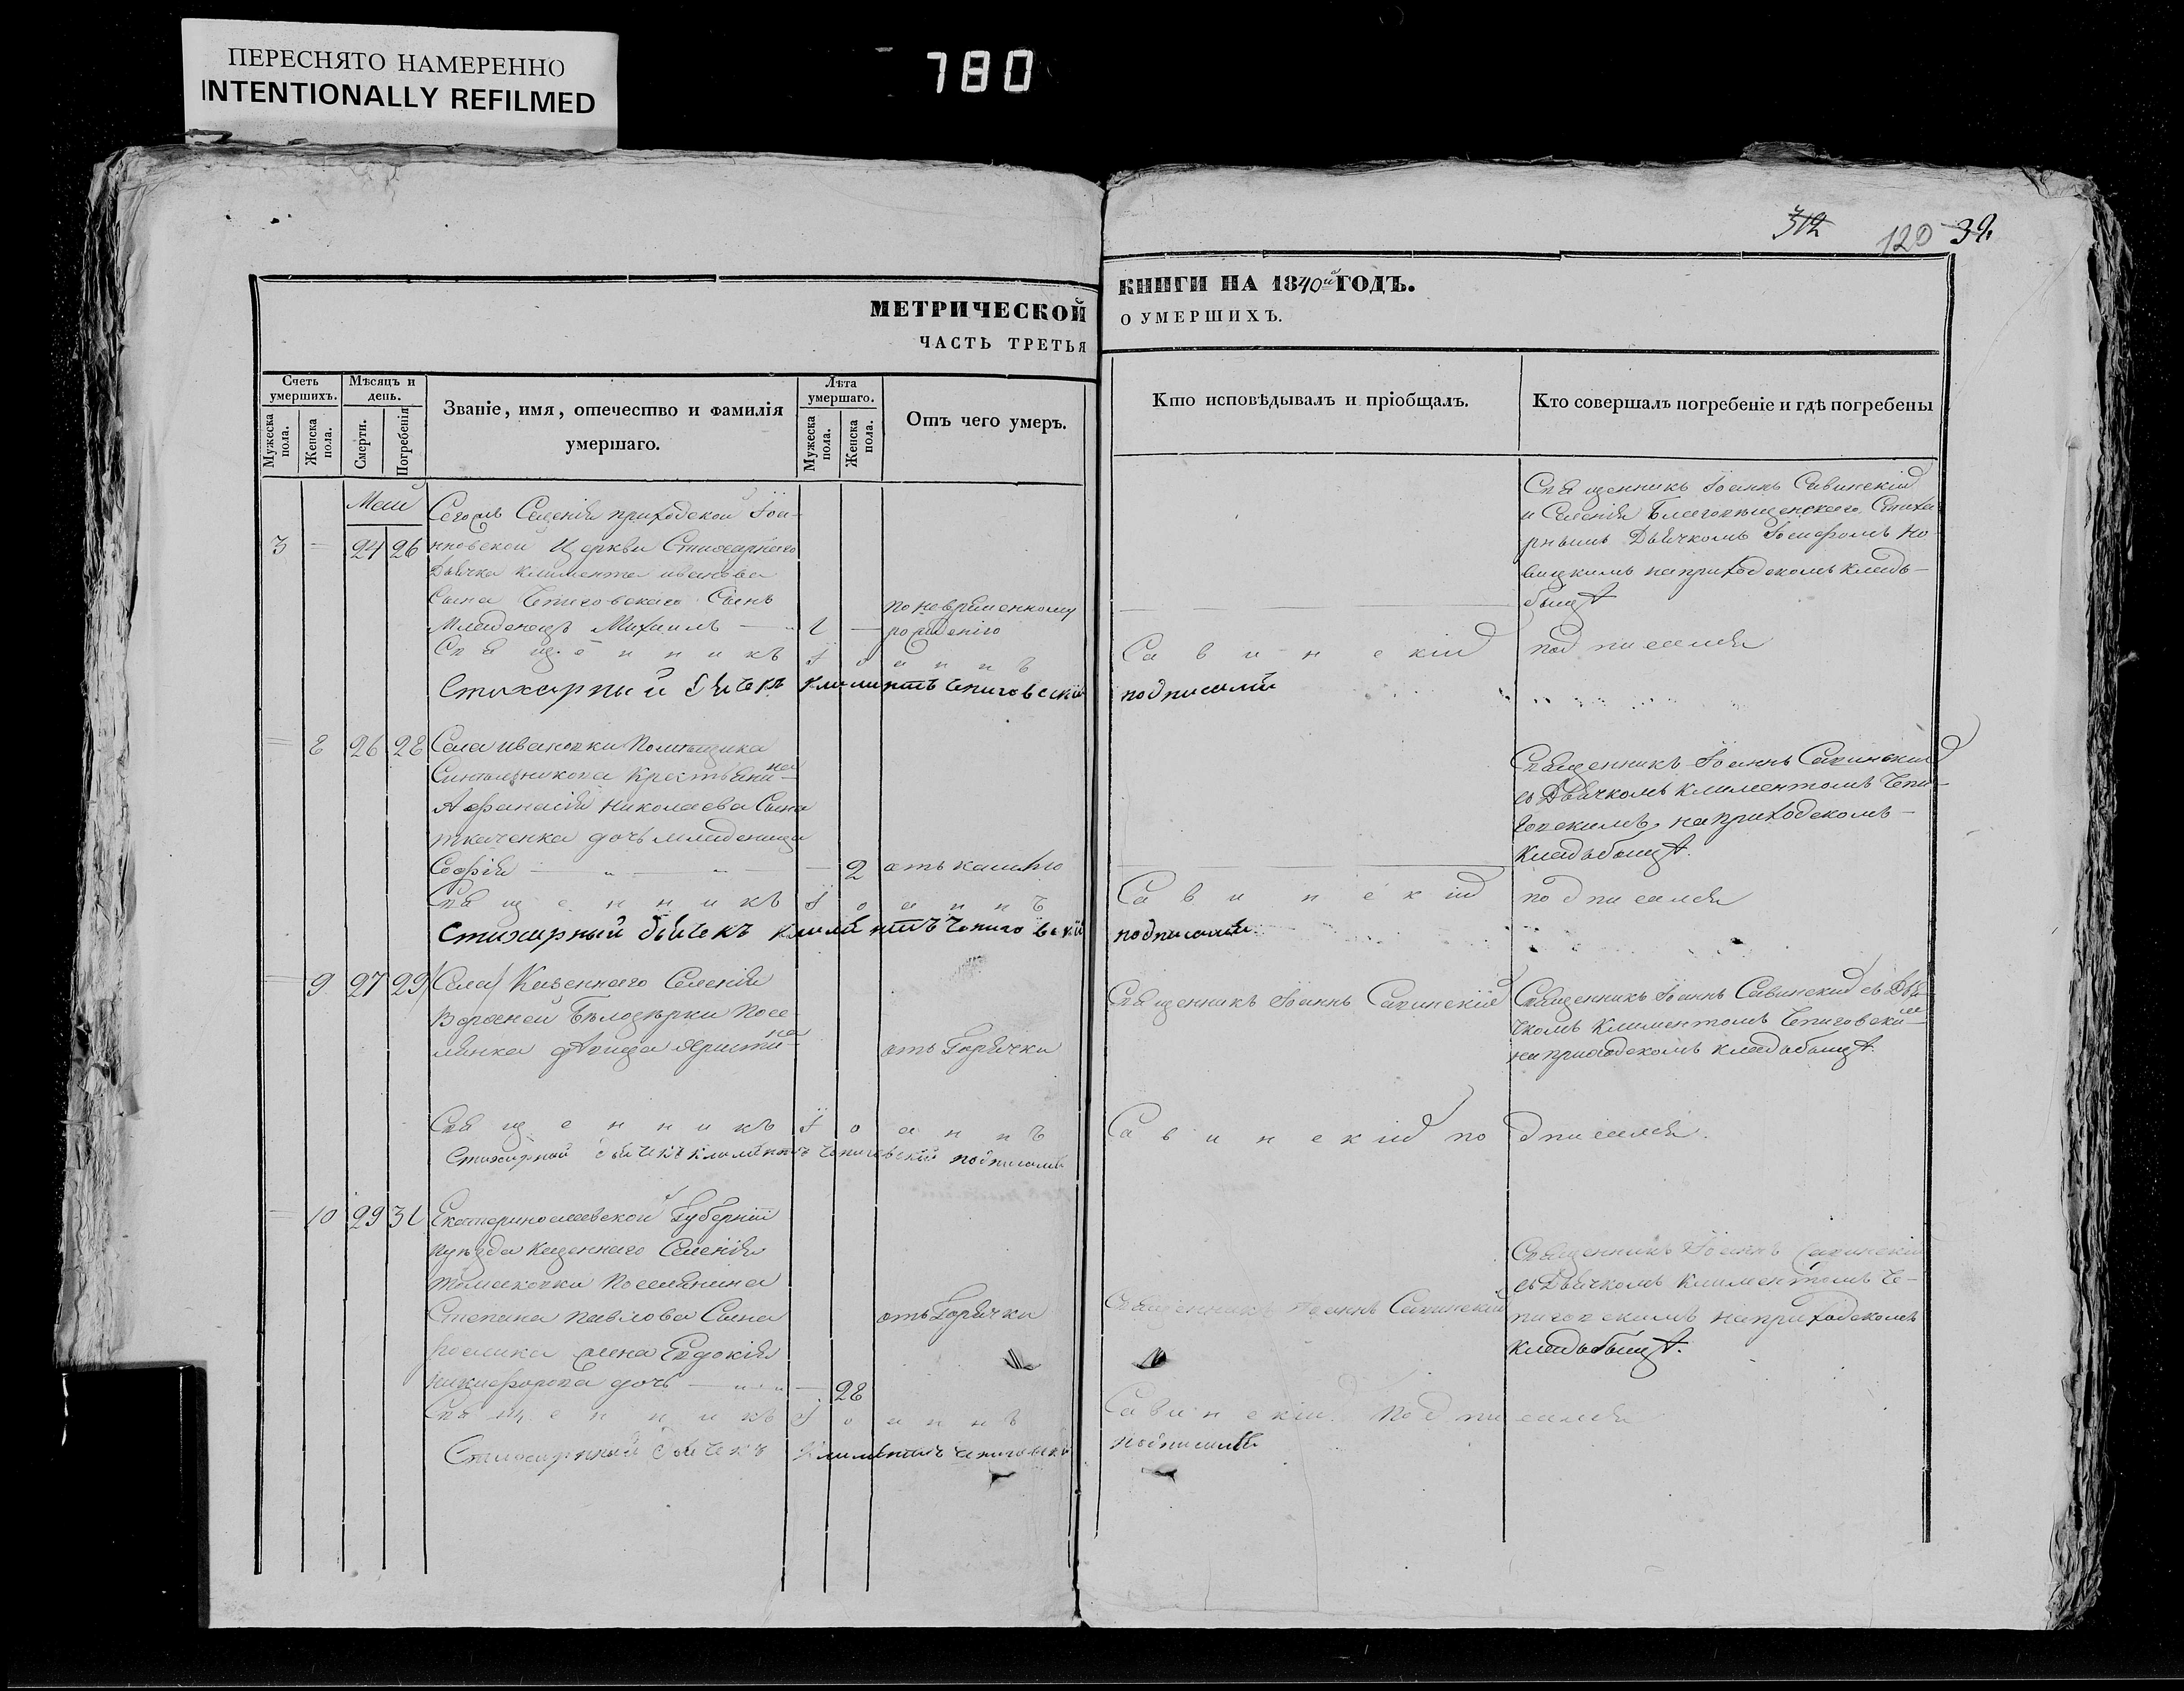 ПЕРЕСНЯТО НАМЕРЕННО
INTENTIONALLY REFILMED
780
312 120 39.
МЕТРИЧЕСКОЙ
ЧАСТЬ ТРЕТЬЯ
КНИГИ НА 1840й ГОДЪ.
О УМЕРШИХЪ.
Счетъ умершихъ.
Мужеска пола.
Женска пола.
Мѣсяцъ и день.
Смерти.
Погребенія
Званіе, имя, отечество и фамилія
умершаго.
Лѣта умершаго.
Мужеска пола.
Женска пола.
Отъ чего умеръ.
Кто исповѣдывалъ и пріобщалъ.
Кто совершалъ погребеніе и гдѣ погребены
Май
3 24 26
Селенія приходской Іоа-
нновской Церкви Стихарнаго
Дьячка Климента иванова
Сына Чепиговскаго Сынъ
Младенецъ Михаилъ 1
по невременному
рожденію
Священникъ Іоаннъ Савинскій
и Селенія Благовѣщенского Стиха
рнымъ Дьячкомъ Іосифомъ Но
вицкимъ на приходскомъ кладь
бищѣ
Священникъ Іоаннъ Савинскій подписался
Стихарный дьячекъ Климентъ Чепиговскій подписался
8 26 28
Села ивановки Помѣщика
Синтельникова Крестьянина
Афанасія Николаева Сына
ткаченка дочь младеница
Софія 2
отъ кашлю
Священникъ Іоаннъ Савинскій
съ Дьячкомъ Климентомъ Чепи-
говскимъ, на приходскомъ
кладьбищѣ.
Священникъ Іоаннъ Савинскій подписался
Стихарный дьячекъ Климентъ Чепиговскій подписался
9 27 29
Села Казенного Селенія
Верхней Бѣлозѣрки Посе
лянка вдовица Христина
отъ Горячки
Священникъ Іоаннъ Савинскій
Священникъ Іоаннъ Савинскій съ Дья
чкомъ Климентомъ Чепиговским
на приходскомъ кладьбищѣ.
Священникъ Іоаннъ Савинскій подписался.
Стихарный дьячекъ Климентъ Чепиговскій подписался
10 29 31
Екатеринославской Губерніи
уѣзда Казенного Селенія
томаковки Поселянина
Степана Павлова Сына
жена Евдокія
Никифорова дочь 28
отъ Горячки
Священникъ Іоаннъ Савинскій
Священникъ Іоаннъ Савинскій
съ Дьячкомъ Климентомъ Че-
пиговскимъ на приходскомъ
кладьбищѣ.
Священникъ Іоаннъ Савинскій подписался
Стихарный дьячекъ Климентъ Чепиговскій подписался